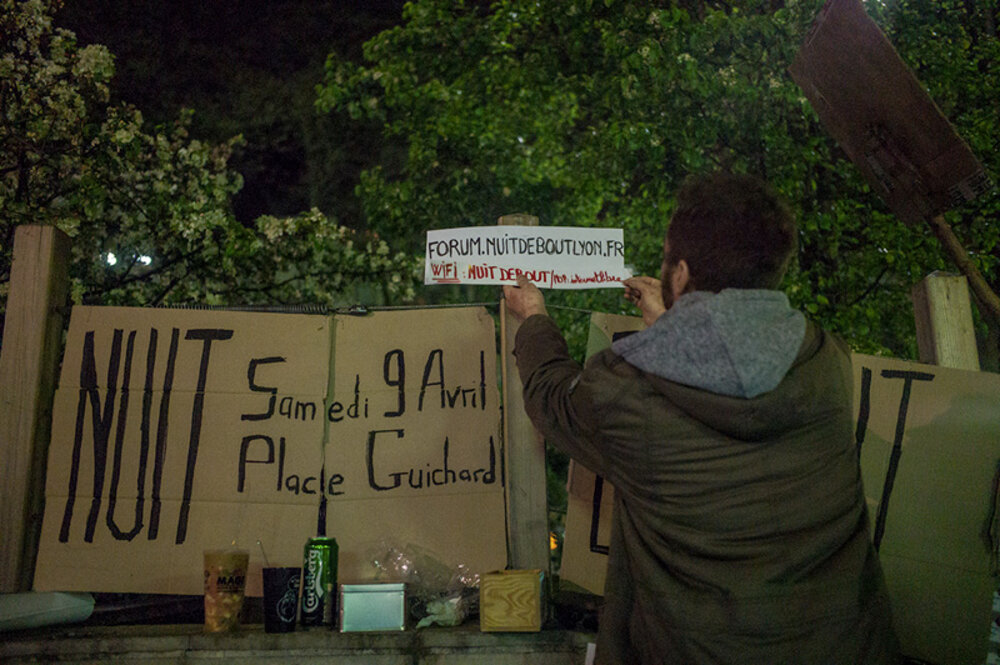 FORUM.NUITDEBOUTLYON.FR
WIFI : NUIT DEBOUT/
NUIT
Samedi 9 Avril
Place Guichard
Carlsberg
IT